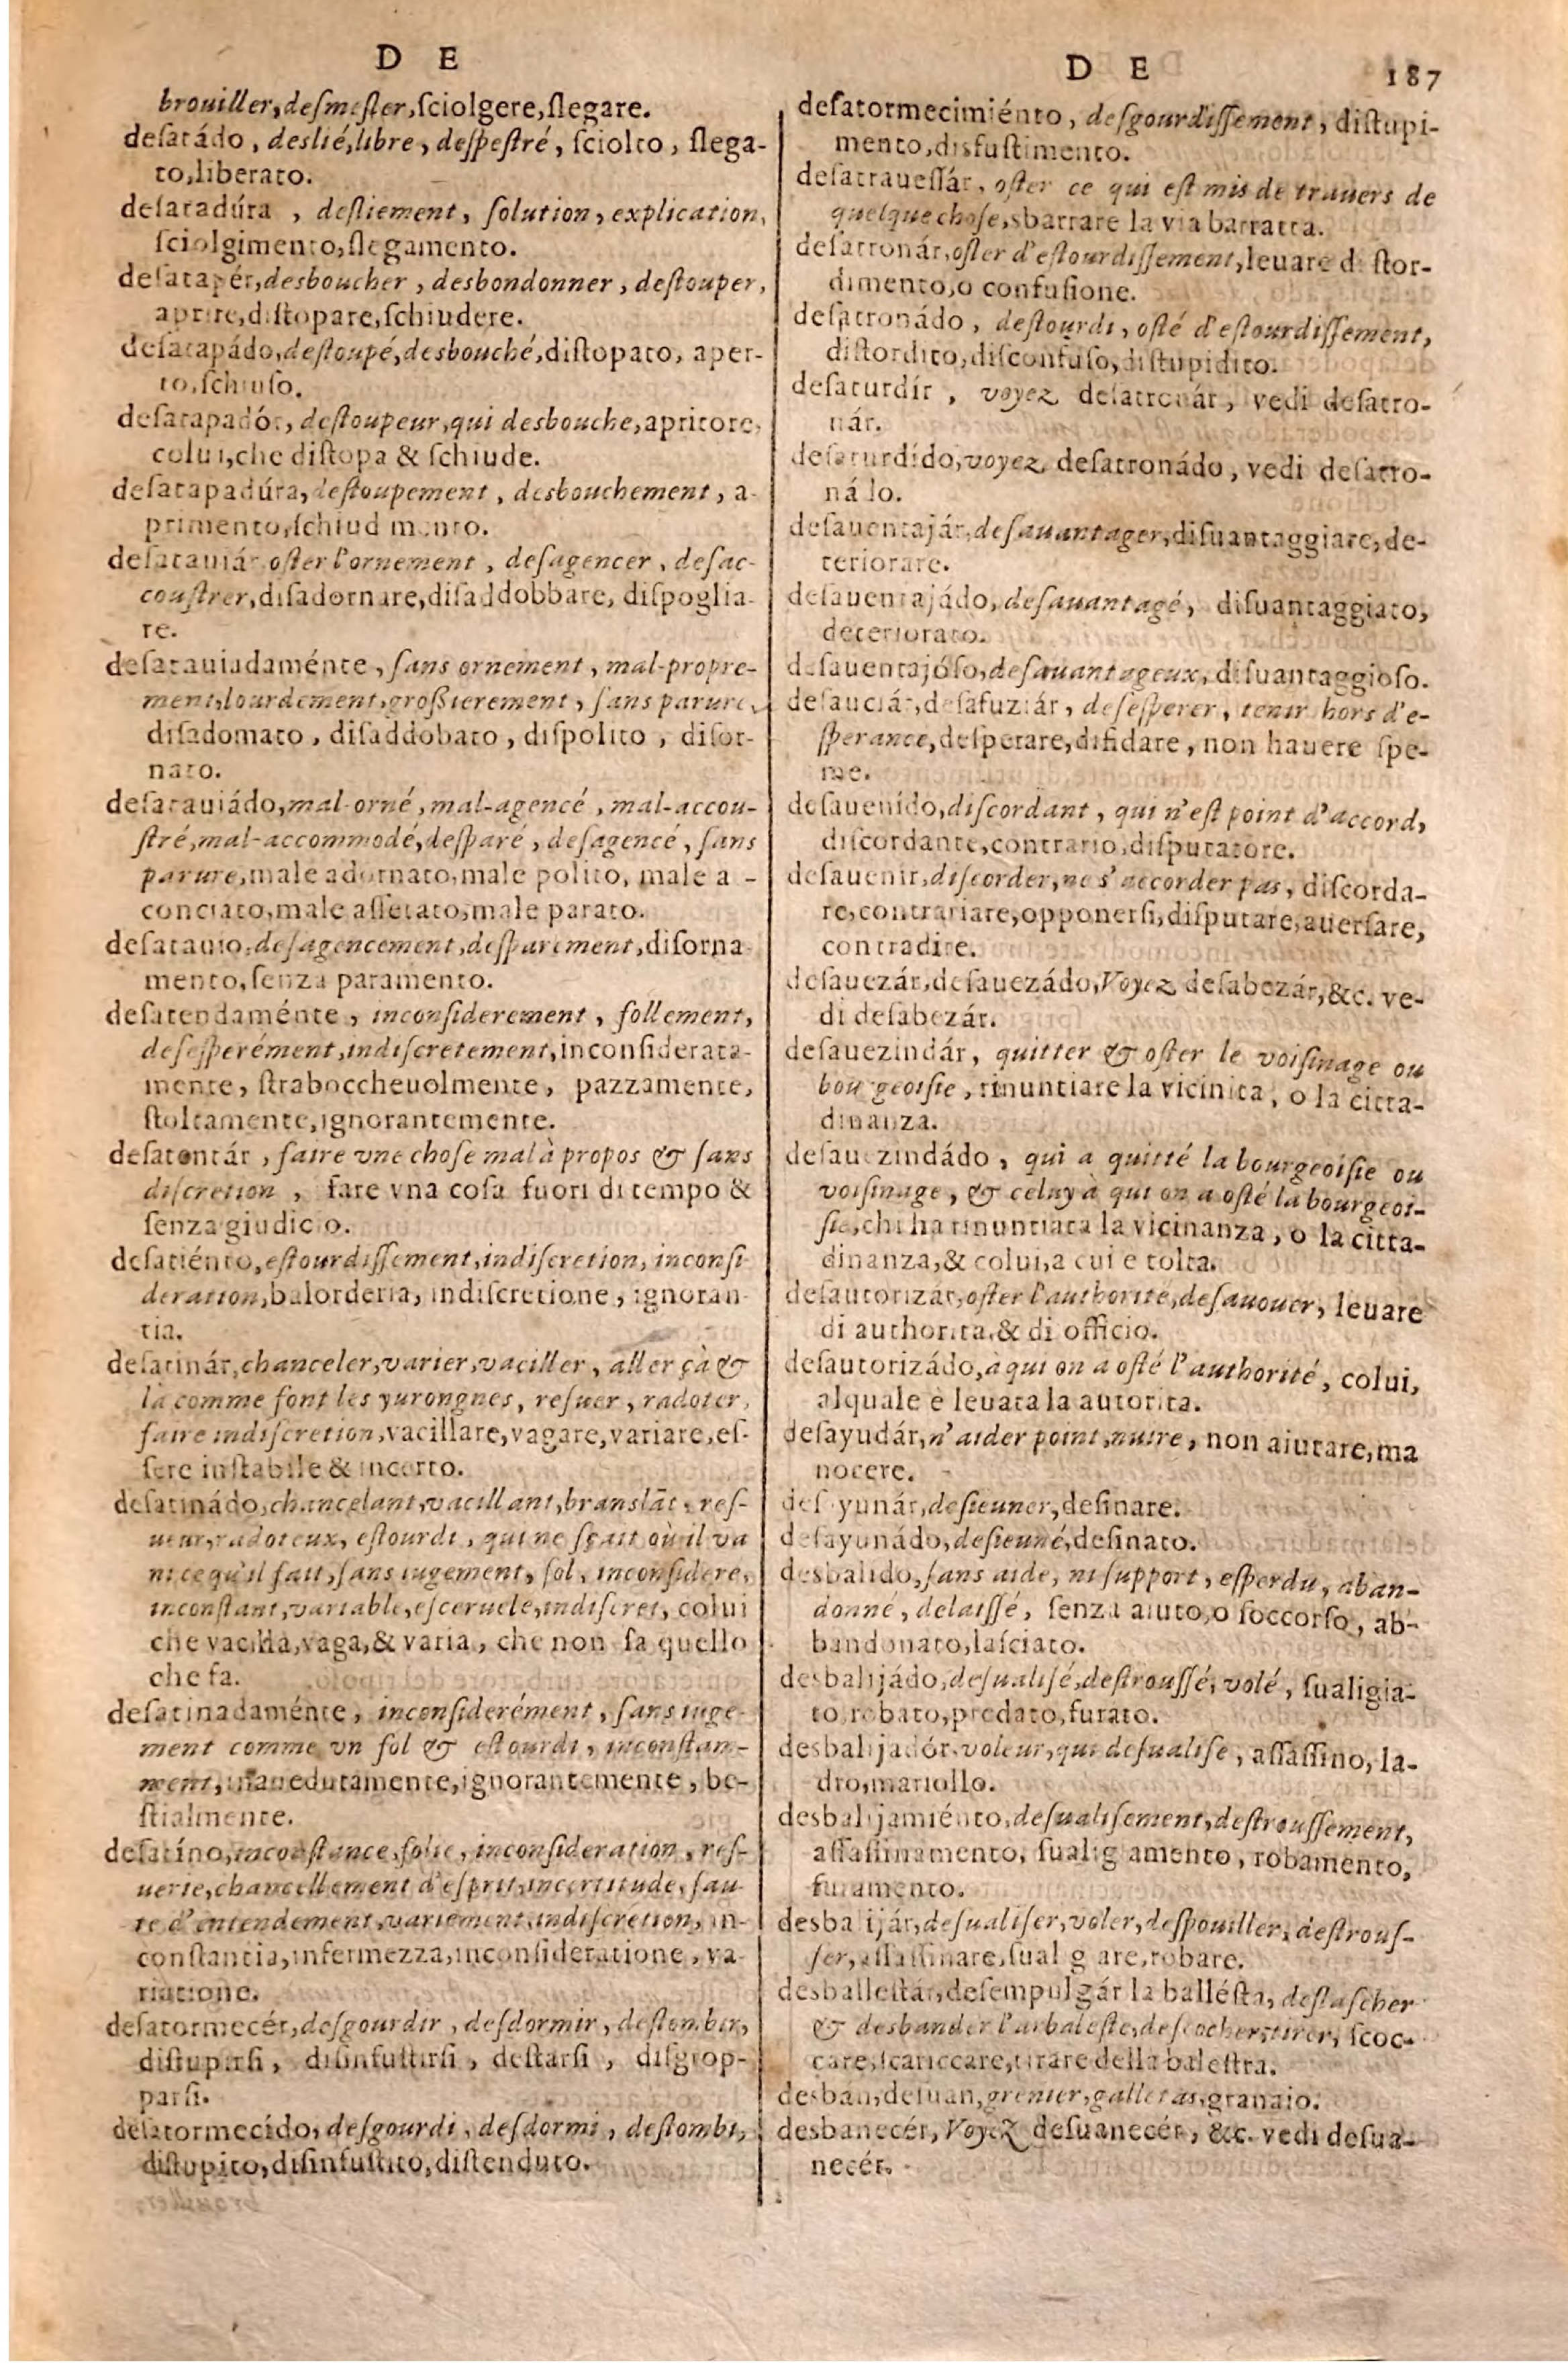 D E
brouiller, desmesler, sciolgere, slegare.
desatádo, deslié, libre, despestré, sciolto, slega-
to, liberato.
desatadúra, desliement, solution, explication,
sciolgimento, slegamento.
desatapér, desboucher, desbondonner, destouper,
aprire, distopare, schiudere.
desatapádo, destoupé, desbouché, distopato, aper-
to, schiuso.
desatapadór, destoupeur, qui desbouche, apritore,
colui, che distopa & schiude.
desatapadúra, destoupement, desbouchement, a-
primento, schiudimento.
desatauiár oster l'ornement, desagencer, desac-
coustrer, disadornare, disaddobbare, dispoglia-
re.
desatauiadaménte, sans ornement, mal-propre-
ment, lourdement, grossierement, sans parure,
disadornato, disaddobato, dispolito, disor-
nato.
desatauiádo, mal-orné, mal-agencé, mal-accou-
stré, mal-accommodé, desparé, desagencé, sans
parure, male adornato, male polito, male a-
conciato, male assetato, male parato.
desatauio, desagencement, desparement, disorna-
mento, senza paramento.
desatendaménte, inconsiderement, follement,
desesperément, indiscretement, inconsiderata-
mente, straboccheuolmente, pazzamente,
stoltamente, ignorantemente.
desatentár, faire vne chose mal à propos & sans
discretion, fare vna cosa fuori di tempo &
senza giudicio.
desatiénto, estourdissement, indiscretion, inconsi-
deration, balorderia, indiscretione, ignoran-
tia.
desatinár, chanceler, varier, vaciller, aller çà &
là comme font les yurongnes, resuer, radoter,
faire indiscretion, vacillare, vagare, variare, es-
sere instabile & incerto.
desatinádo, chancelant, vacillant, branslāt, res-
ueur, radoteux, estourdi, qui ne sçait où il va
ni ce qu'il fait, sans iugement, fol, inconsidere,
inconstant, variable, esceruele, indiscret, colui
che vacilla, vaga, & varia, che non sa quello
che fa.
desatinadaménte, inconsiderément, sans iuge-
ment comme vn fol & estourdi, inconstam-
ment, inauedutamente, ignorantemente, be-
stialmente.
desatíno, inconstance, folie, inconsideration, res-
uerie, chancellement d'esprit, incertitude, fau-
te d'entendement, variement, indiscretion, in-
constantia, infermezza, inconsideratione, va-
riatione.
desatormecér, desgourdir, desdormir, destombir,
distupirsi, disinfustirsi, destarsi, disgrop-
parsi.
desatormecído, desgourdi, desdormi, destombi,
distupito, disinfustito, distenduto.
D E 187
desatormecimiénto, desgourdissement, distupi-
mento, disfustimento.
desatrauessár, oster ce qui est mis de trauers de
quelque chose, sbarrare la via barratta.
desatronár, oster d'estourdissement, leuare di stor-
dimento, o confusione.
desatronádo, destourdi, osté d'estourdissement,
distordito, disconfuso, distupidito.
desaturdír, voyez desatronár, vedi desatro-
nár.
desaturdído, voyez desatronádo, vedi desatro-
nádo.
desauentajár, desauantager, disuantaggiare, de-
teriorare.
desauentajádo, desauantagé, disuantaggiato,
deteriorato.
desauentajóso, desauantageux, disuantaggioso.
desauciár, desafuziár, desesperer, tenir hors d'e-
sperance, desperare, difidare, non hauere spe-
me.
desauenído, discordant, qui n'est point d'accord,
discordante, contrario, disputatore.
desauenir, discorder, ne s'accorder pas, discorda-
re, contrariare, opponersi, disputare, auersare,
contradire.
desauezár, desauezádo, Voyez desabezár, &c. ve-
di desabezár.
desauezindár, quitter & oster le voisinage ou
bourgeoisie, rinuntiare la vicinita, o la citta-
dinanza.
desauezindádo, qui a quitté la bourgeoisie ou
voisinage, & celuy à qui on a osté la bourgeoi-
sie, chi ha rinuntiata la vicinanza, o la citta-
dinanza, & colui, a cui e tolta.
desautorizár, oster l'authorité, desauouer, leuare
di authorita, & di officio.
desautorizádo, à qui on a osté l'authorité, colui,
alquale è leuata la autorita.
desayudár, n'aider point, nuire, non aiutare, ma
nocere.
des yunár, desieuner, desinare.
desayunádo, desieuné, desinato.
desbalido, sans aide, ni support, esperdu, aban-
donné, delaissé, senza aiuto, o soccorso, ab-
bandonato, lasciato.
desbalijádo, desualisé, destroussé, volé, sualigia-
to, robato, predato, furato.
desbalijadór, voleur, qui desualise, assassino, la-
dro, mariollo.
desbalijamiénto, desualisement, destroussement,
assassinamento, sualig amento, robamento,
furamento.
desba ijár, desualiser, voler, despouiller, destrous-
ser, assassinare, sual g are, robare.
desballestár, desempulgár la ballésta, deslascher
& desbander l'arbaleste, descocher, tirer, scoc-
care, scariccare, tirare della balestra.
desban, desuan, grenier, galletas, granaio.
desbanecér, Voyez desuanecér, &c. vedi desua-
necér.